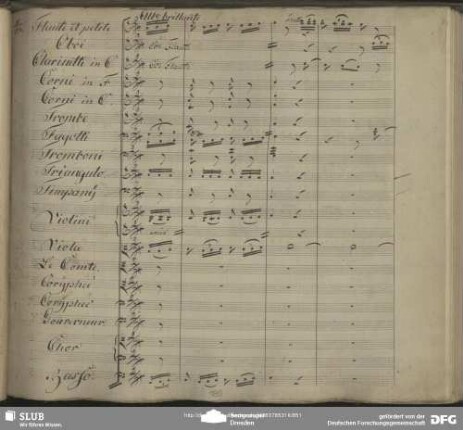 Allo brillante
Flauti et petite
Oboi
Col Flauti
Clarinetti in C.
Col Flauti
Corni in F.
Corni in C.
Trombe
Fagotti
Tromboni
Triangulo
Timpany
Violini
Viola
Le Comte.
Coryphée
Coryphée
Gouverneur
Chor
Basso.
SLUB
Wir führen Wissen.
http://d
Dresden
gefördert von der
Deutschen Forschungsgemeinschaft
DFG